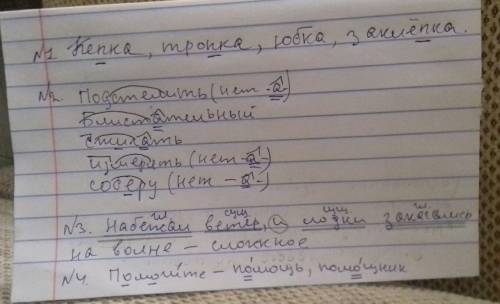 №1 Кепка, тропка, юбка, заклёпка.
№2. Подстелить (нет -а-)
Блистательный
стикать
измерять (нет -а-)
соберу (нет -а-)
гл. сущ сущ. гл.
№3. Набежал ветер, и лодки закачались
на волне – сложное
№4. Помогите – помощь, помощник